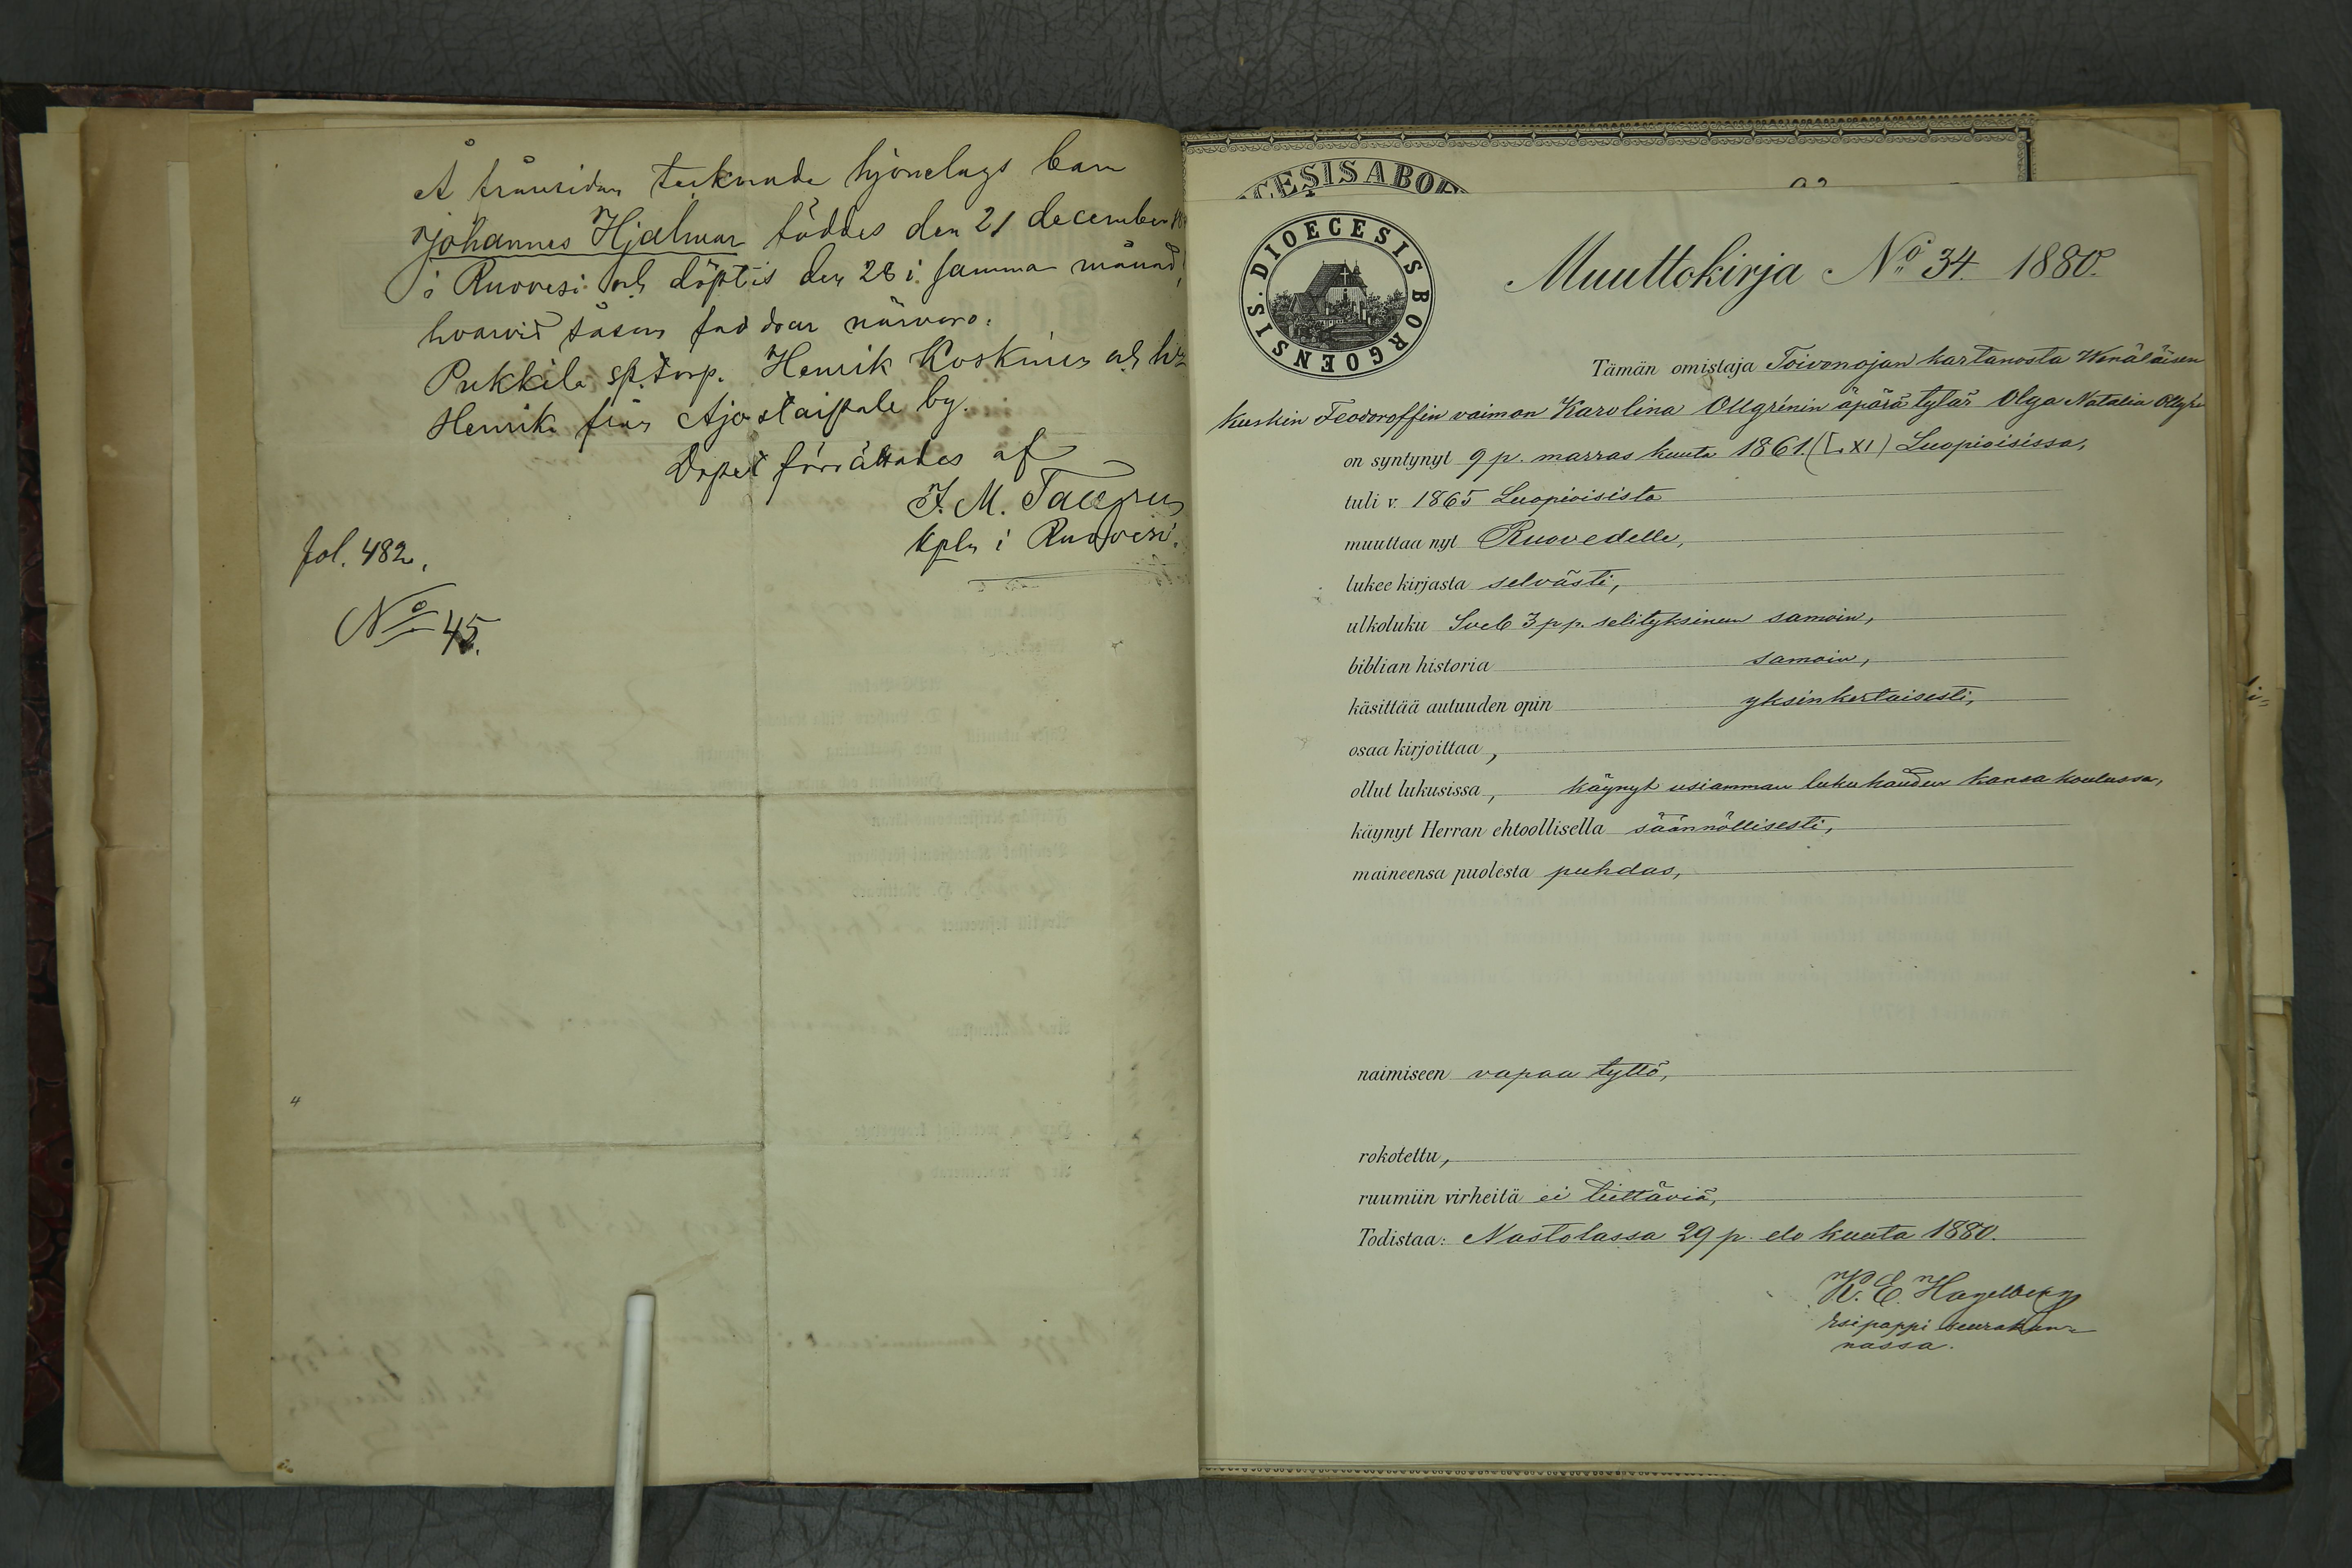 Å frånsidan tecknade hjonelags barn
Johannes Hjalmar föddes den 21 december
i Ruovesi och döptes den 28 i samma månad,
hvarvid såsom faddrar närvoro:
Pukkila sp.torp. Henrik Koskinen och h:u
Henrika från Ajostaipale by.
Dopet förrättades af
J. M. Tallgren
kpln i Ruovesi.
fol. 482.
No 45.
4
CESIS ABOE
DIOECESIS BORGOENSIS.
Muuttokirja No 34. 1880.
Tämän omistaja Toivonojan kartanosta Wenäläisen
kuskin Feodoroffin vaimon Karolina Ollgrénin äpärä tytär Olga Natalia Ollgrén
on syntynyt 9 p. marras kuuta 1861. (LXI) Luopioisissa,
tuli v. 1865 Luopioisista
muuttaa nyt Ruovedelle,
lukee kirjasta selvästi,
ulkoluku Sveb 3 pp. selityksineen samoin,
biblian historia samoin,
käsittää autuuden opin yksinkertaisesti,
osaa kirjoittaa,
ollut lukusissa, käynyt usiamman lukukauden kansakoulussa,
käynyt Herran ehtoollisella säännöllisesti,
maineensa puolesta puhdas,
naimiseen vapaa tyttö,
rokotettu,
ruumiin virheitä ei tiettäviä,
Todistaa: Nastolassa 29 p. elo kuuta 1880.
K. E. Hagelberg
esipappi seurakun=
nassa.